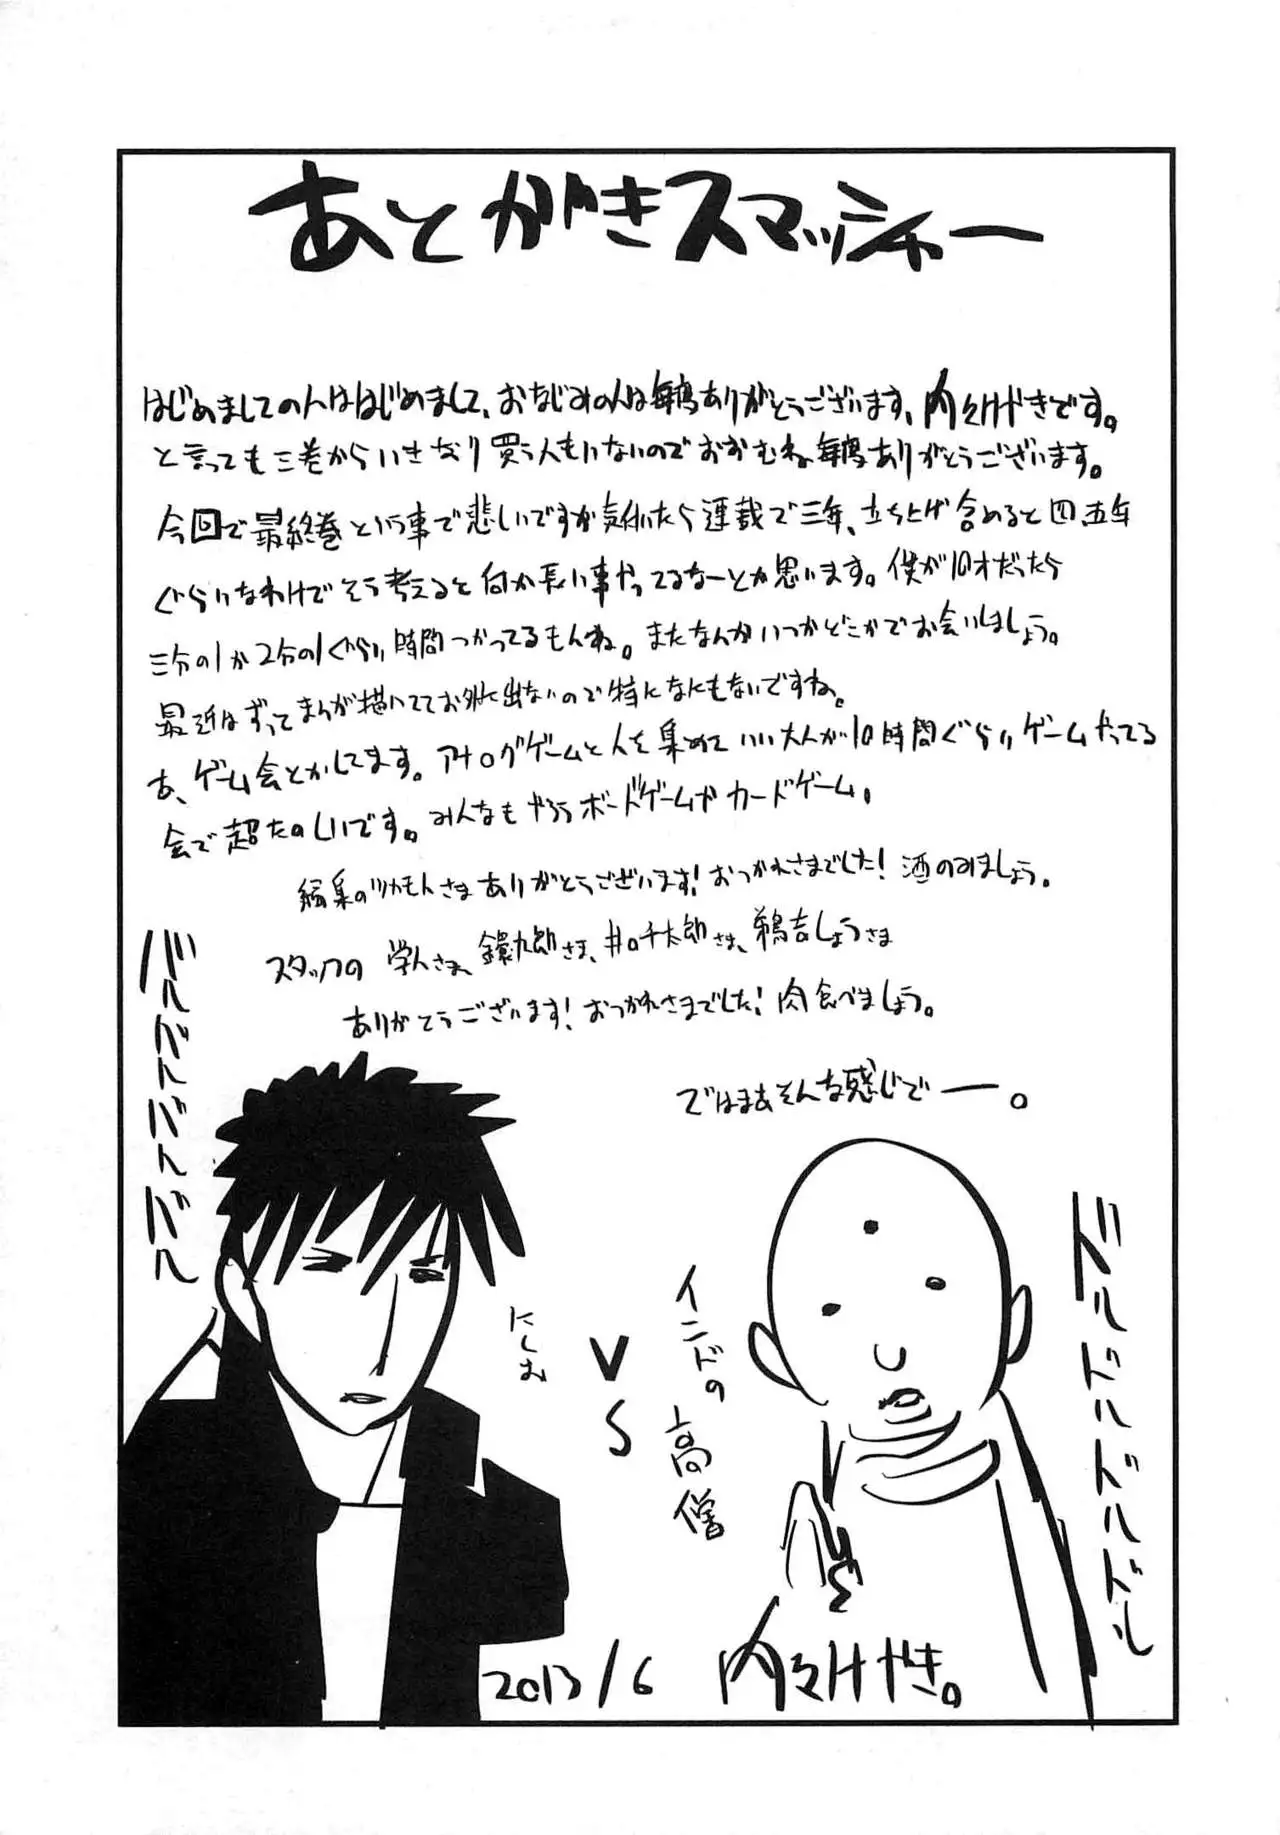 あとがきスマッシャー
はじめましての人ははじめまして、おなじみの人は毎度ありがとうございます、内々けやきです。
と言っても三巻からいきなり買う人もいないのでおおむね毎度ありがとうございます。
今回で最終巻という事で悲しいですが気付いたら連載で三年、立ち上げ含めると四、五年
ぐらいなわけでそう考えると何か長い事やってるなーとか思います。僕が10才だったら
三分の1か2分の1ぐらい時間つかってるもんね。またなんかいつかどこかでお会いしましょう。
最近はずってまんが描いててお外に出ないので特になにもないですね。
あ、ゲーム会とかしてます。アナログゲームと人を集めていい大人が10時間ぐらいゲームやってる
会で超たのしいです。みんなもやろうボードゲームやカードゲーム。
編集のツカモトさまありがとうございます!おつかれさまでした!酒のみましょう。
スタッフの 学人さま、九郎さま、井口千太郎さま、鵜吉しょうさま
ありがとうございます!おつかれさまでした!肉食べましょう。
ではまあそんな感じでー。
バルバルバルバル
にしお
VS
インドの高僧
ドルドルドルドル
2013/6 内々けやき。